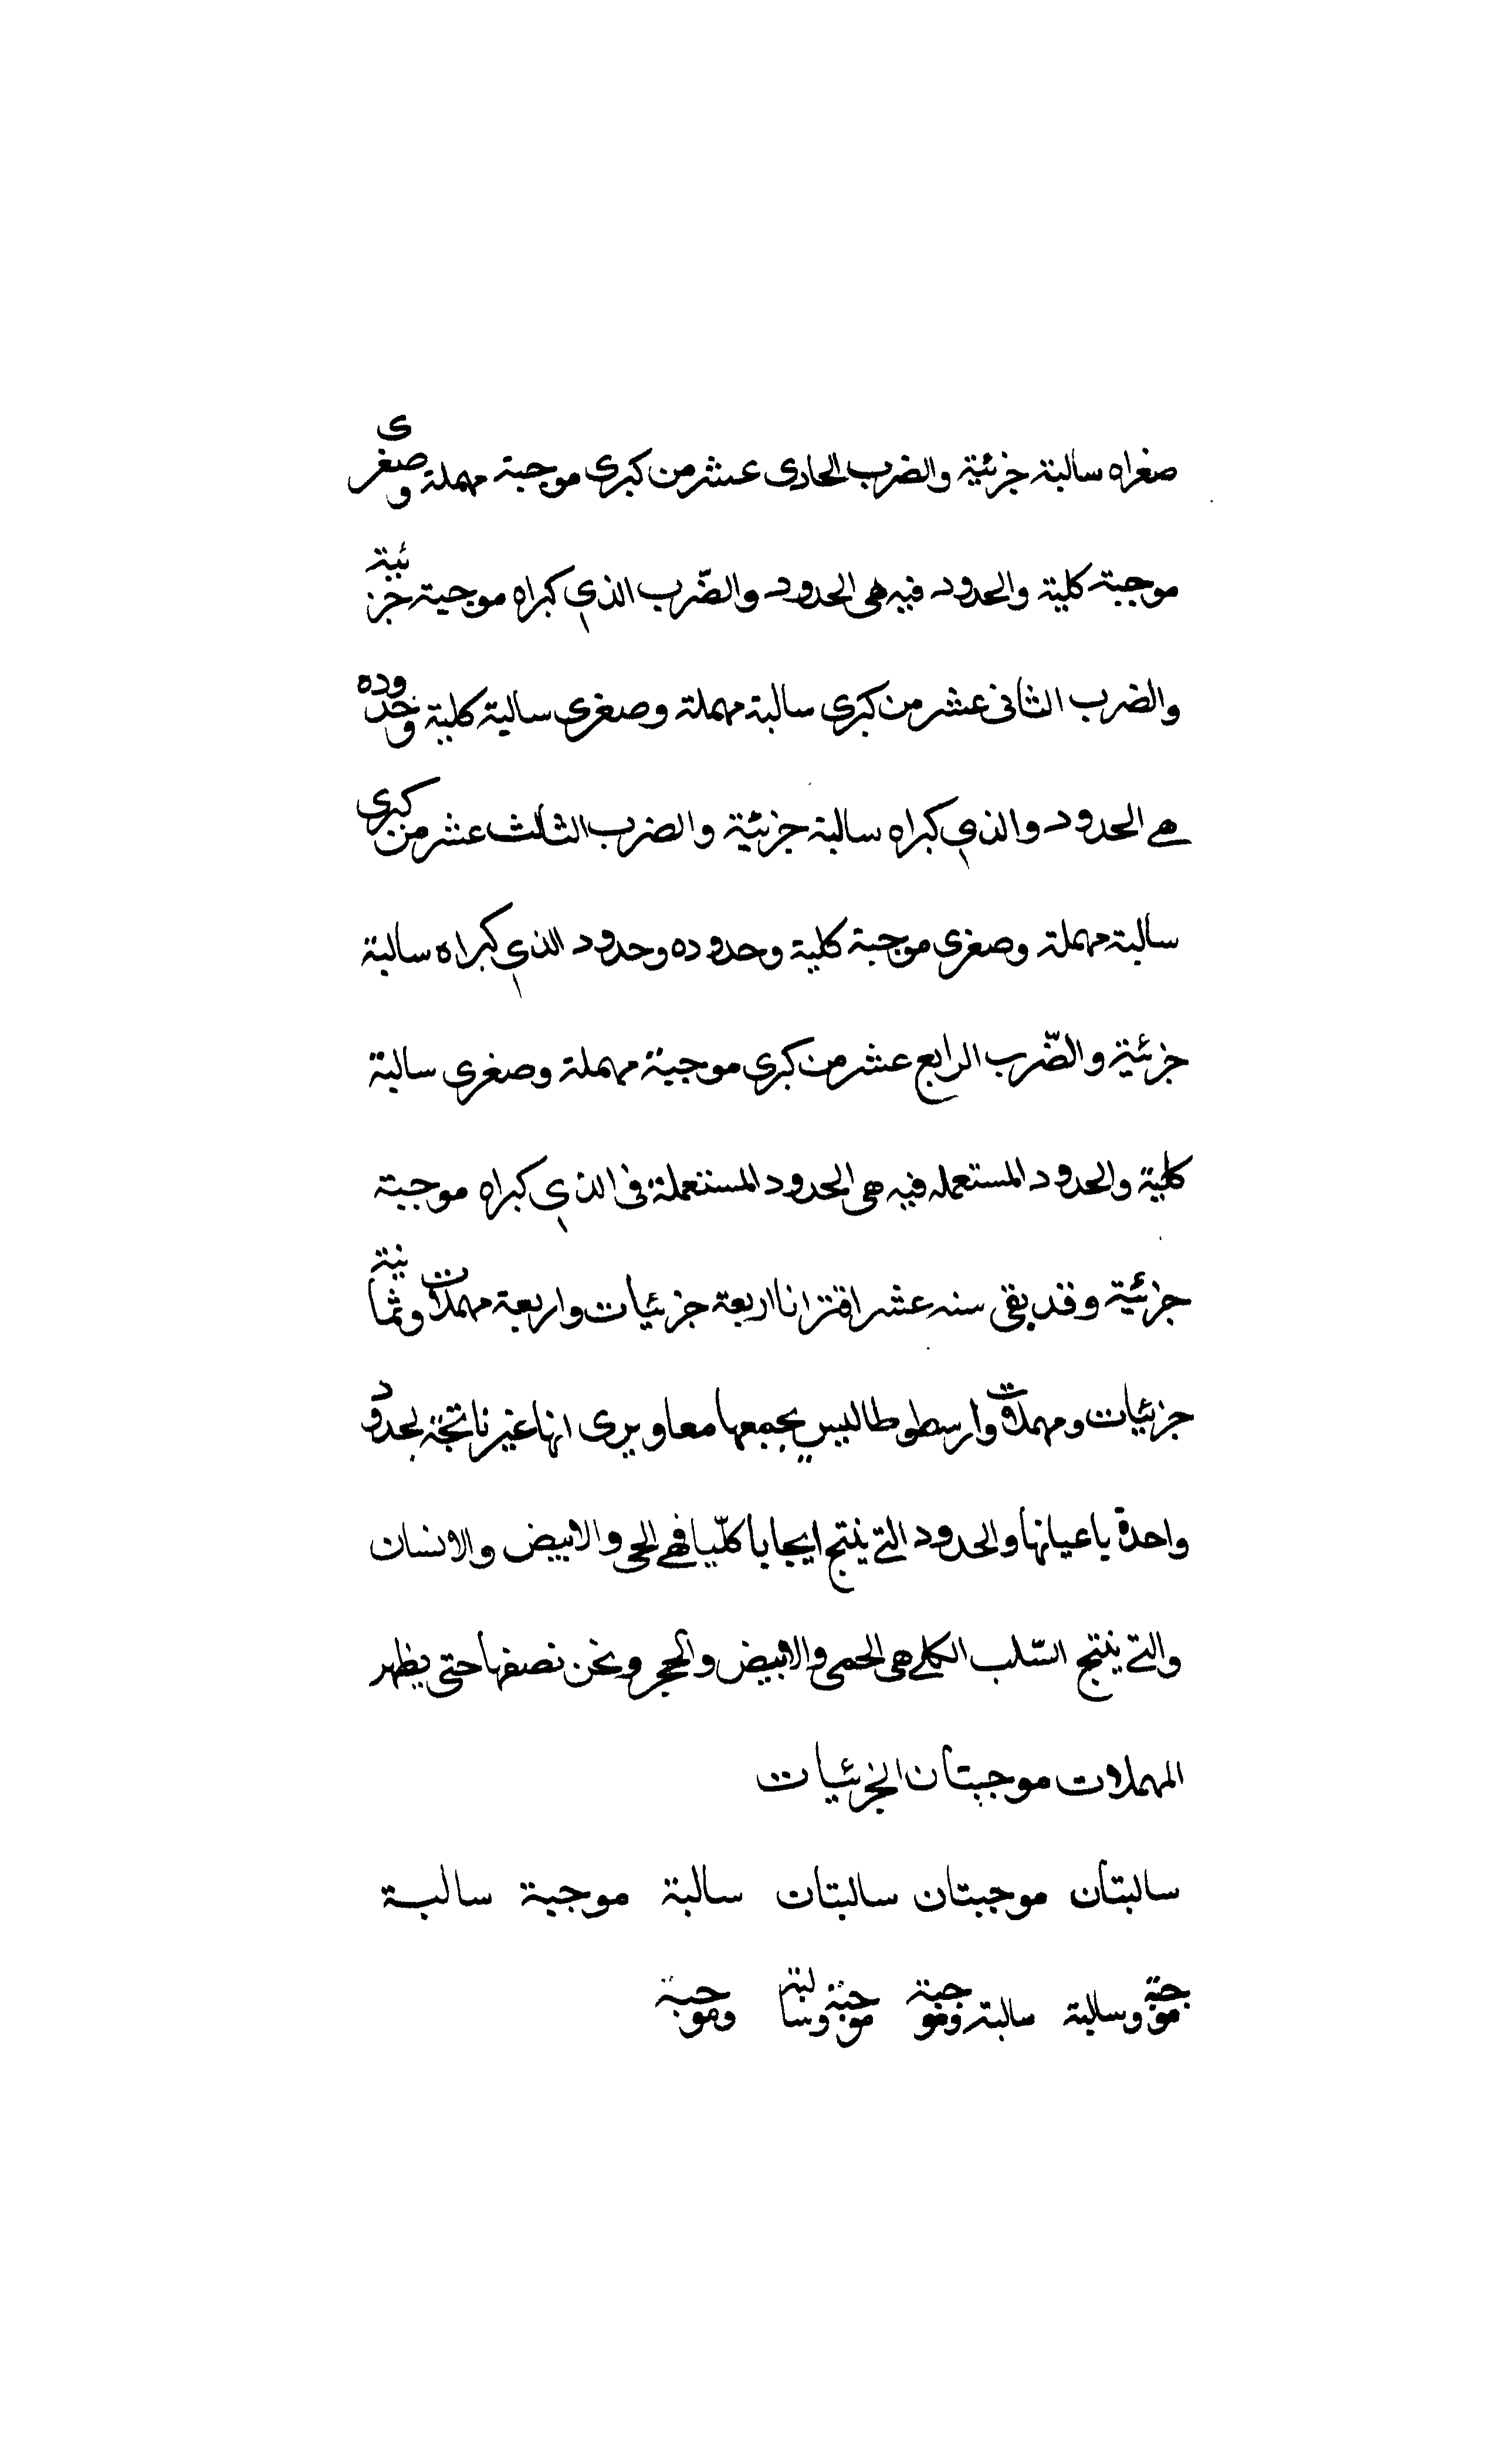 صغراه سالبة جزئية والضرب الحادى عشر من كبرى موجبة مهملة وصغرى
موجبة كلية والحدود فيه هى الحدود والضّرب الذي كبراه موجبة جزئية
والضرب الثانى عشر من كبرى سالبة مهملة وصغرى سالبة كلية وحدوده
هے الحدود والذي كبراه سالبة جزئية والضرب الثالث عشر من كبرى
سالبة مهملة وصغرى موجبة كلية وحدوده وحدود الذي كبراه سالبة
جزئية والضّرب الرابع عشر من كبرى موجبة مهملة وصغرى سالبة
كلية والحدود المستعمله فيه هى الحدود المستعملة فى الذي كبراه موجبة
جزئية وقد بقى سته عشر اقترانا اربعة جزئيات واربعة مهملات وثمانية
جزئيات ومهملات وارسطوطاليس يجمعها معا ويرى انها غير ناتجة بحدود
واحدة باعيانها والحدود التے ينتج ايجابا كلّيا فهے الحى والابيض والانسان
والتے ينتج السّلب الكلے هى الحى والابيض والحجر ونحن نصفها حتى يظهر
المهملات موجبتان الجزئيات
سالبتان موجبتان سالبتان سالبة موجبة سالبة
موجبة وسالبة سالبة وموجبة موجبة وسالبة وموجبة